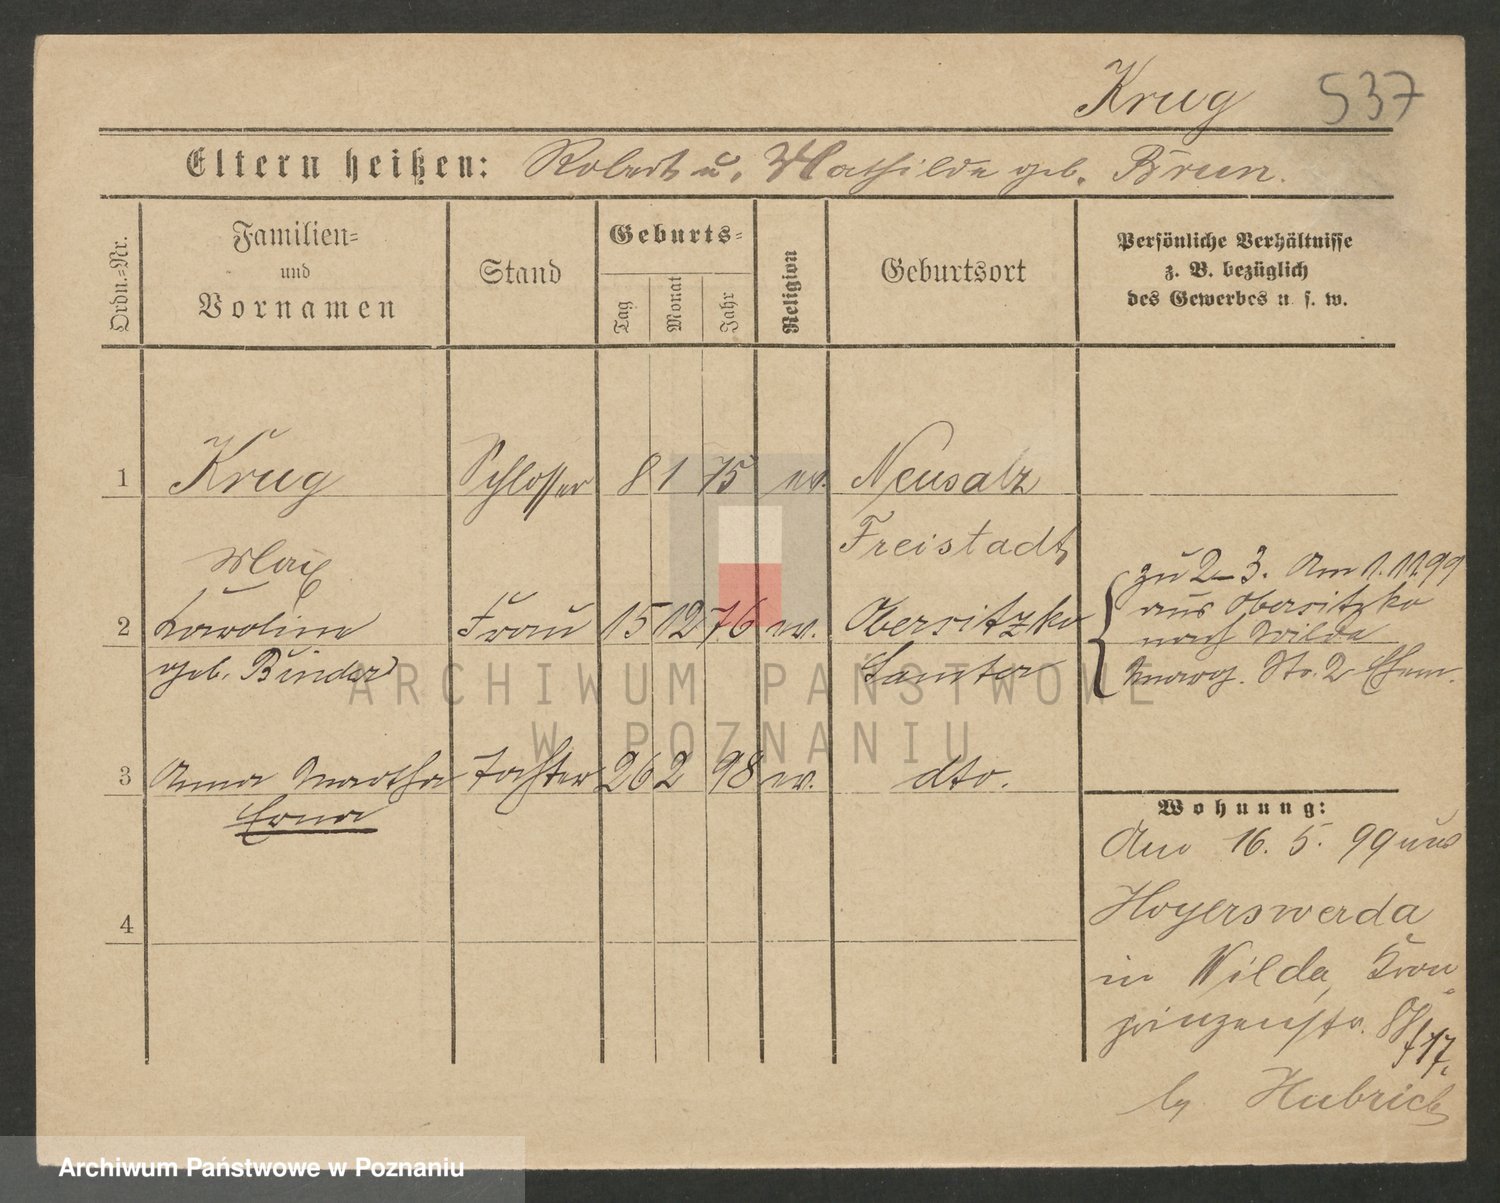 Krug 537
Eltern heißen: Robert u. Mathilde geb. Brun.
Ordn.-Nr.
Familien-
und
Vornamen
Stand
Geburts-
Tag
Monat
Jahr
Religion
Geburtsort
Persönliche Verhältnisse
z. B. bezüglich
des Gewerbes u. s. w.
1 Krug Schlosser 8 1 75 ev. Neusalz
Max Freistadt
2 Karoline Frau 15 12 76 ev. Obersitzko
geb. Binder Samter
zu 2-3. Am 1.11.99
aus Obersitzko
nach Wilda
Marg. Str. 2 Ehem.
3 Anna Martha Tochter 26 2 98 ev. dto.
Erna
4
Wohnung:
Am 16. 5. 99 aus
Hoyerswerda
in Wilda, Kron-
prinzenstr.
17.
by Hubrich
ARCHIWUM PAŃSTWOWE
W POZNANIU
Archiwum Państwowe w Poznaniu